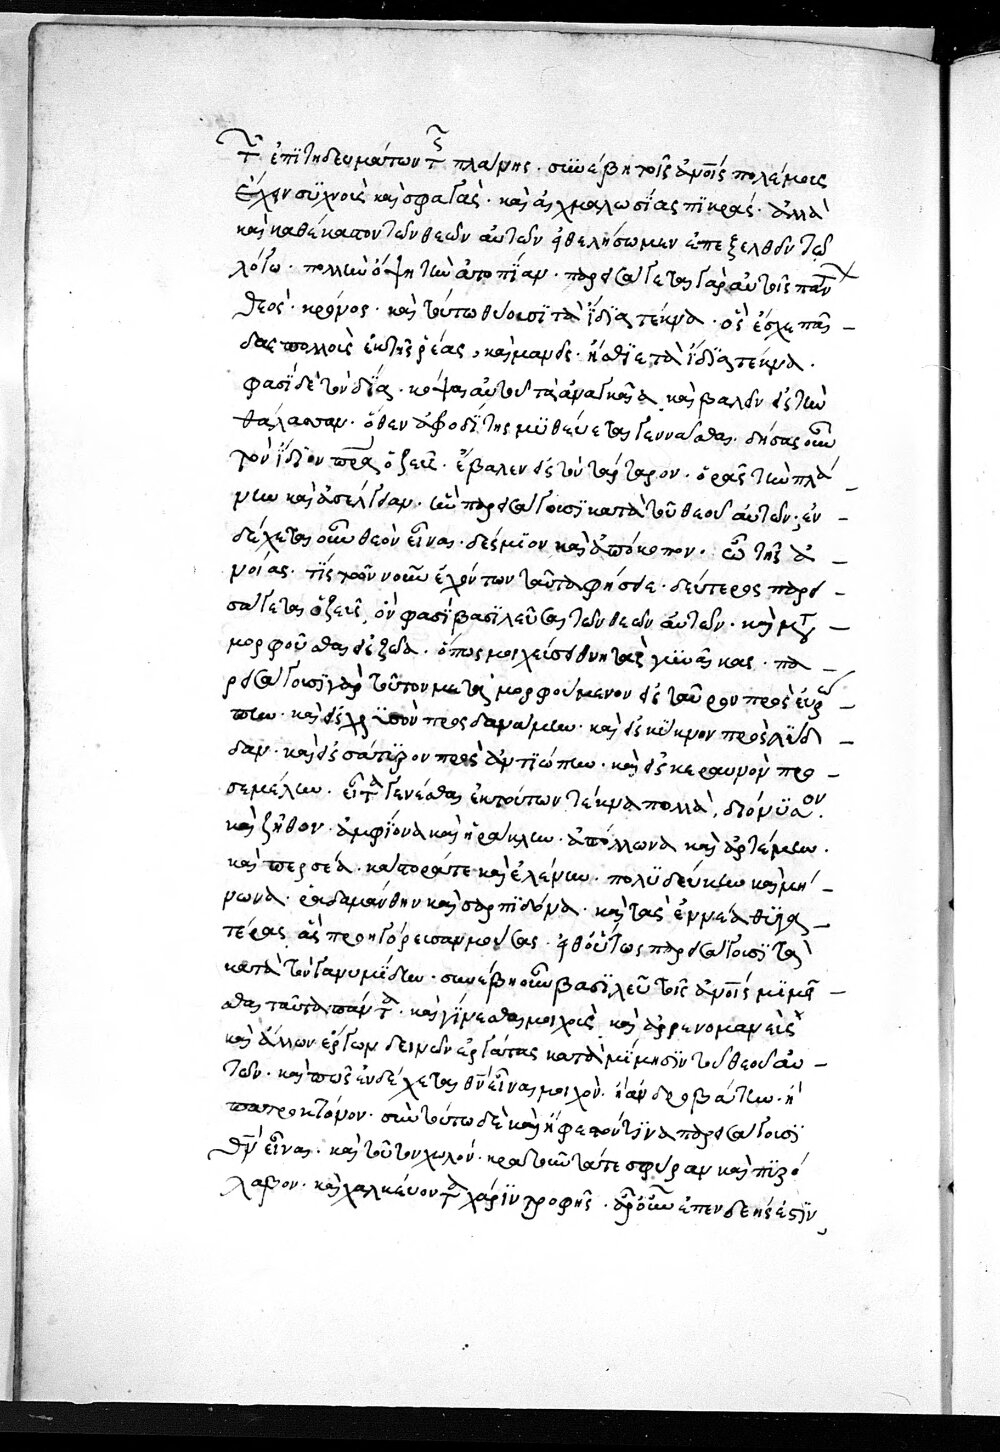 τῶν ἐπιτηδευμάτων τῆς πλάνης· συνέβη τοῖς ἀνοις πολέμους
ἔχειν συχνοὺς καὶ σφαγὰς· καὶ αἰχμαλωσίας πικράς· ἀλλὰ
καὶ καθέκαστον τῶν θεῶν αὐτῶν ἠθελήσωμεν ἐπεξελθεῖν τῷ
λόγω· πολλὴν ὄψη τὴν ἀτοπίαν· παρεισάγεται γὰρ αὐτοῖς πάντων
θεὸς· κρόνος· καὶ τούτω θύουσι τὰ ἴδια τέκνα· ὃς ἔσχε παῖ
δας πολλοὺς ἐκ τῆς ῥέας, καὶ μανεὶς· ἤσθιε τὰ ἴδια τέκνα·
φασὶ δὲ τὸν δία· κόψαι αὐτοῦ τὰ ἀναγκαῖα, καὶ βαλεῖν εἰς τὴν
θάλασσαν· ὅθεν ἀφροδίτης μυθεύεται γεννᾶσθαι· δήσας οὖν
τὸν ἴδιον πρα ὁ ζεὺς· ἔβαλεν εἰς τὸν τάρταρον· ὁρᾶς τὴν πλά
νην καὶ ἀσέλγειαν· ἣν παρεισάγουσι κατὰ τοῦ θεοῦ αὐτῶν; ἐν
δέχεται οὖν θεὸν εἶναι· δέσμιον καὶ ἀπόκοπον· ὢ τῆς ἀ
νοίας· τίς τῶν νοῦν ἐχόντων ταῦτα φήσειε· δεύτερος παρει
σάγεται ὁ ζεὺς, ὅν φασὶ βασιλεῦσαι τῶν θεῶν αὐτῶν· καὶ μετα
μορφοῦσθαι εἰς ζῶα· ὅπως μοιχεύσῃ θνητὰς γυναῖκας· πα
ρεισάγουσι γὰρ τοῦτον μεταμορφούμενον εἰς ταῦρον πρὸς εὐρώ
πην· καὶ εἰς χρυσὸν πρὸς δανάην· καὶ εἰς κύκνον πρὸς λή
δαν· καὶ εἰς σάτυρον πρὸς ἀντιόπην· καὶ εἰς κεραυνὸν πρὸ
σεμέλην· εἶτα γενέσθαι ἐκ τούτων τέκνα πολλά, διόνυσον·
καὶ ζῆθον· ἀμφίονα καὶ ἡρακλῆν· ἀπόλλωνα καὶ ἀρτέμην·
καὶ περσέα· κάστορά τε καὶ ἐλένην· πολυδεύκην καὶ μί
νωνα· ῥαδαμάνθην καὶ σαρπιδόνα· καὶ τὰς ἐννέα θυγα
τέρας ἃς προηγόρευσαν μούσας· εἶθ' οὕτως παρεισάγουσι τὰ
κατὰ τὸν γανυμίδην· συνέβη οὖν βασιλεῦ τοῖς ἀνοις μιμεῖ
σθαι ταῦτα πάντα· καὶ γίνεσθαι μοιχοὺς, καὶ ἀρρενομανεῖς
καὶ ἄλλων ἔργων δεινῶν ἐργάτας κατὰ μίμησιν τοῦ θεοῦ αὐ
τῶν· καὶ πῶς ἐνδέχεται θν εἶναι μοιχὸν· ἢ ἀνδροβάτην· ἢ
πατροκτόνον· σὺν τούτω δὲ καὶ ἥφεστόν τινα παρεισάγουσι
θν εἶναι· καὶ τοῦτον χωλόν· κρατοῦντά τε σφύραν καὶ πυρό
λαβον· καὶ χαλκεύοντα χάριν τροφῆς· ἆρα οὖν ἐπενδεής ἐστιν,